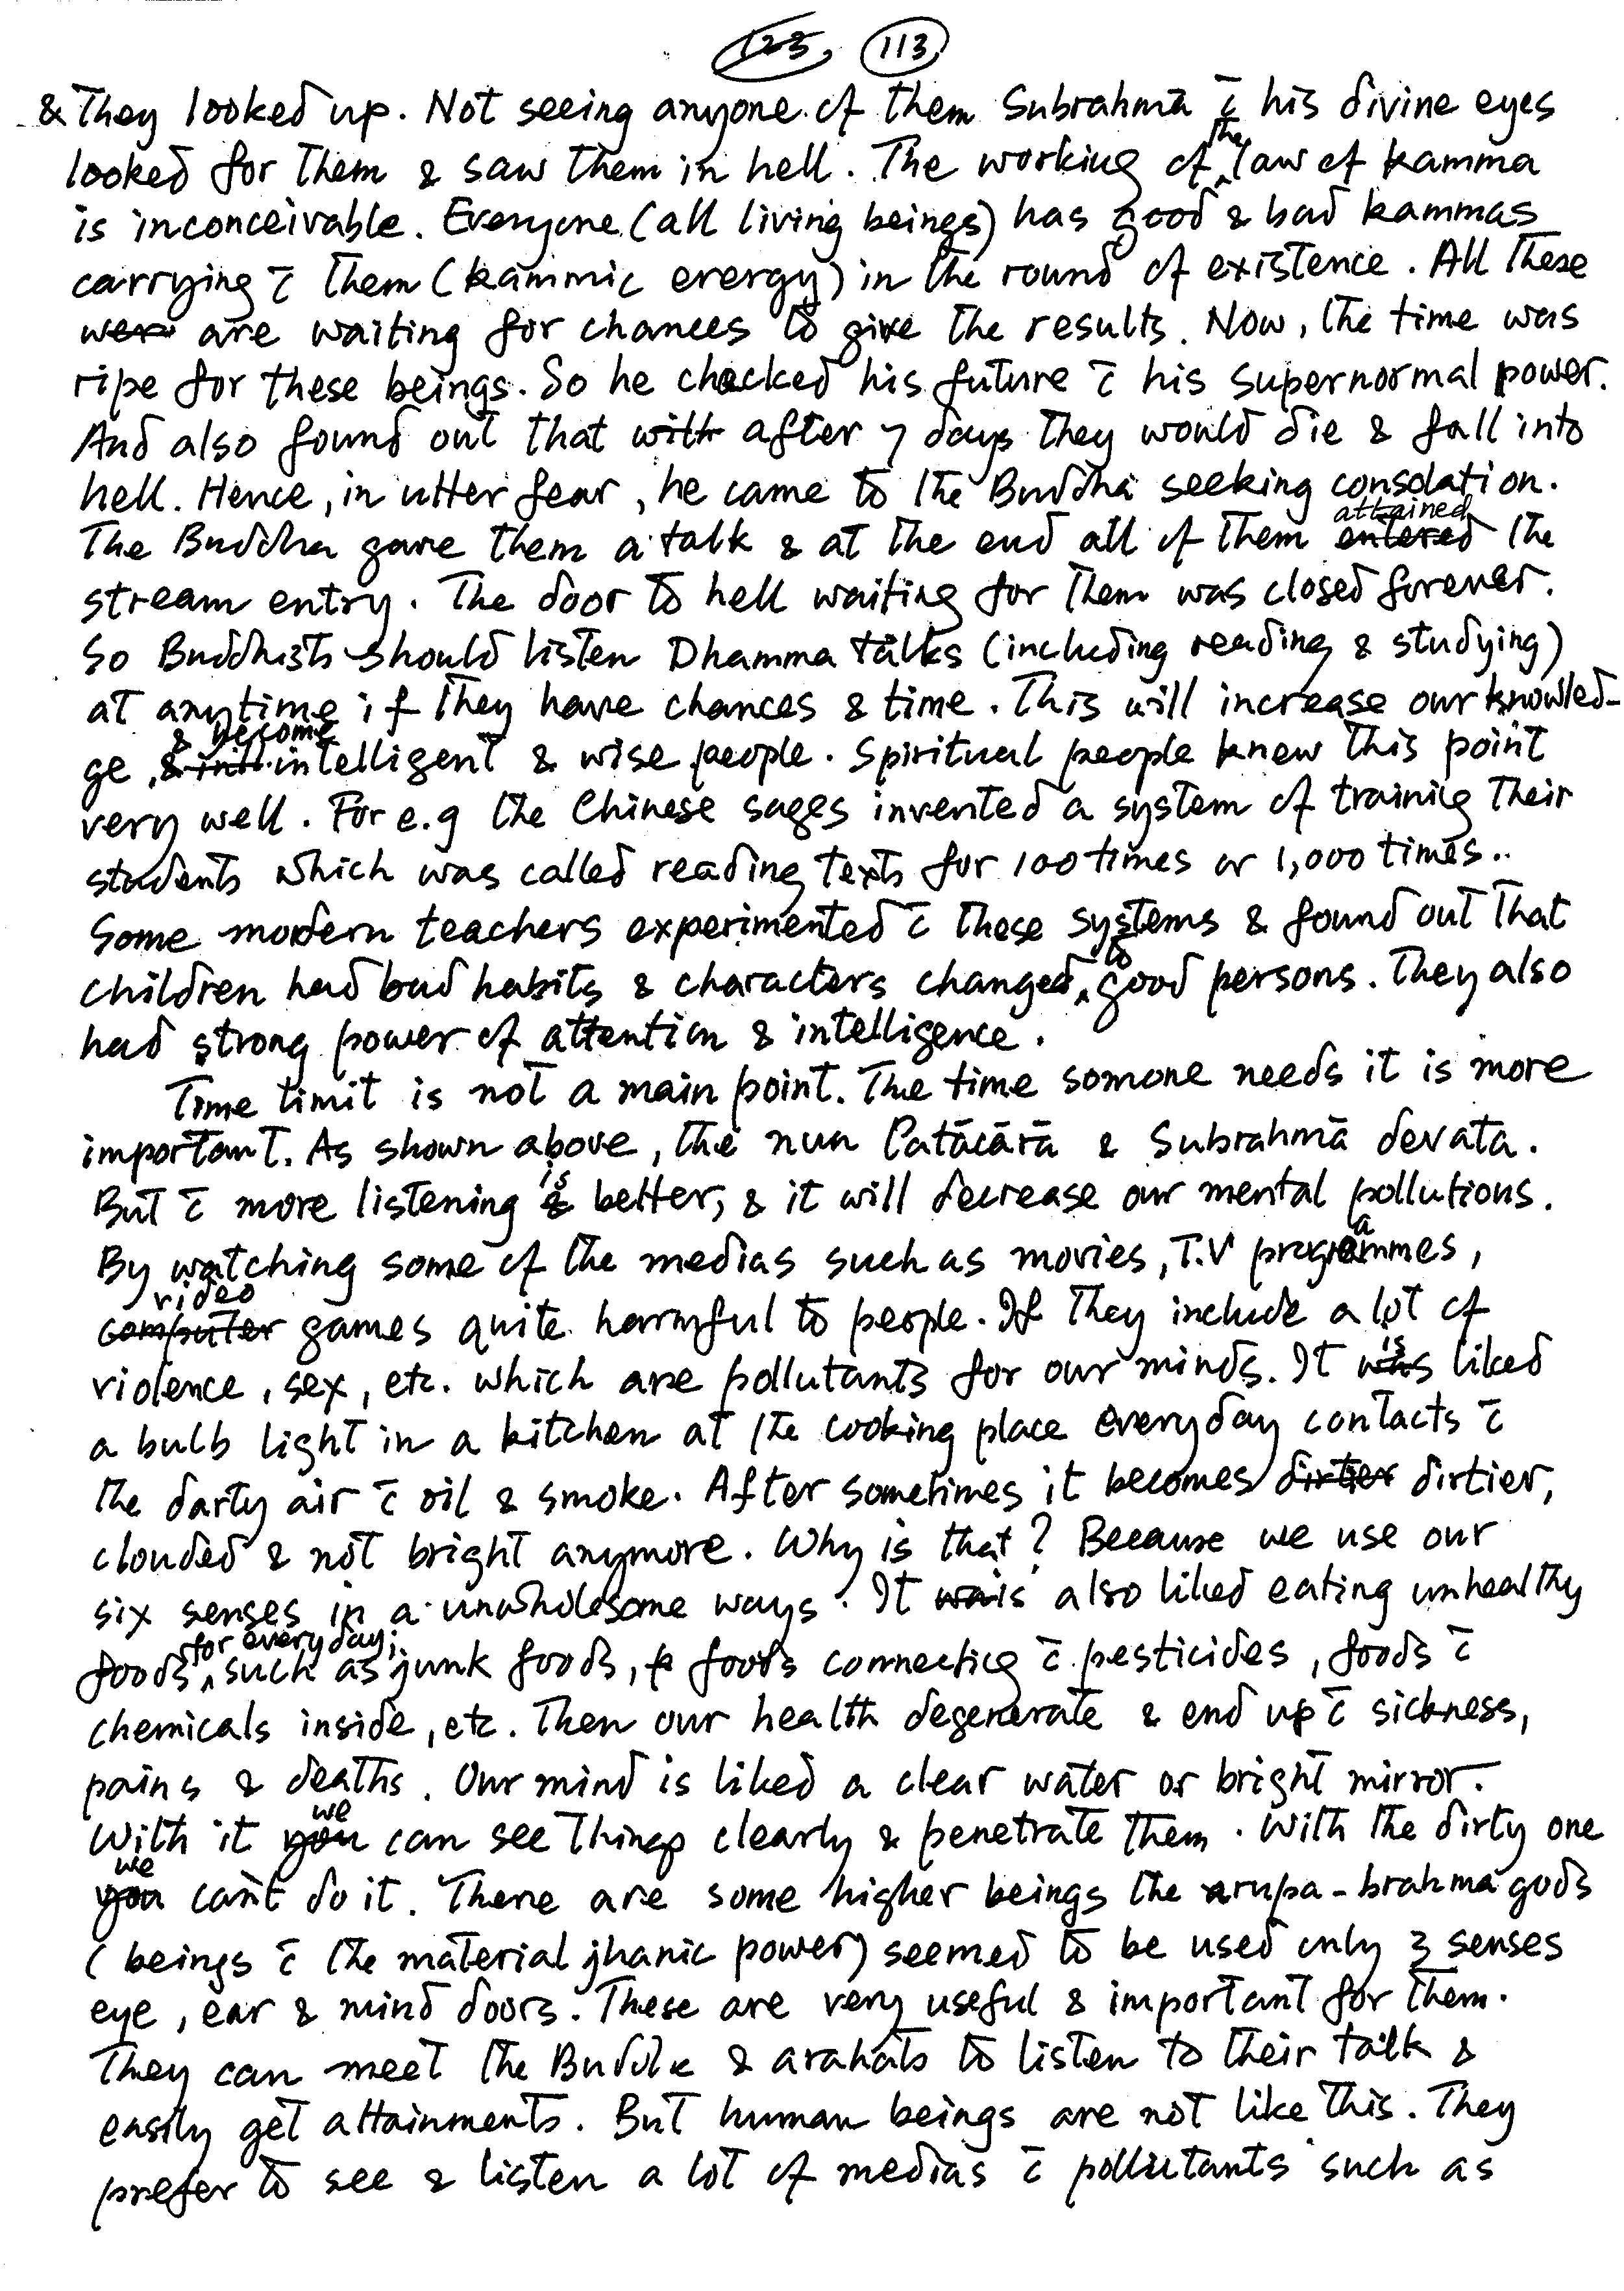 123, 113
& They looked up. Not seeing anyone of them Subrahmā c̄ his divine eyes
looked for them & saw them in hell. The working of the law of kamma
is inconceivable. Everyone (all living beings) has good & bad kammas
carrying c̄ them (kammic energy) in the round of existence. All these
were are waiting for chances to give the results. Now, the time was
ripe for these beings. So he checked his future c̄ his supernormal power.
And also found out that with after 7 days they would die & fall into
hell. Hence, in utter fear, he came to the Buddha seeking consolation.
The Buddha gave them a talk & at the end all of them entered attained the
stream entry. The door to hell waiting for them was closed forever.
So Buddhists should listen Dhamma talks (including reading & studying)
at anytime if they have chances & time. This will increase our knowled-
ge, & become intelligent & wise people. Spiritual people knew this point
very well. For e.g the Chinese sages invented a system of trainiig their
students which was called reading texts for 100 times or 1,000 times..
Some modern teachers experimented c̄ these systems & found out that
children had bad habits & characters changed to good persons. They also
had strong power of attention & intelligence.
Time limit is not a main point. The time somone needs it is more
important. As shown above, the nun Patācārā & Subrahmā devata.
But c̄ more listening is better, & it will decrease our mental pollutions.
By watching some of the medias such as movies, T.V programmes,
computer video games quite harmful to people. If they include a lot of
violence, sex, etc. which are pollutants for our minds. It was is liked
a bulb light in a kitchen at the cooking place everyday contacts c̄
the darty air c̄ oil & smoke. After sometimes it becomes dirtier dirtier,
clouded & not bright anymore. Why is that? Because we use our
six senses in a unwholesome ways. It was is also liked eating unhealthy
foods for everyday; such as junk foods, foods connectiig c̄ pesticides, foods c̄
chemicals inside, etc. Then our health degenerate & end up c̄ sickness,
pains & deaths. Our mind is liked a clear water or bright mirror.
With it you we can see things clearly & penetrate them. With the dirty one
you we can't do it. There are some higher beings the rupa-brahma gods
(beings c̄ the material jhanic power) seemed to be used only 3 senses
eye, ear & mind doors. These are very useful & important for them.
They can meet the Buddha & arahats to listen to their talk &
easily get attainments. But human beings are not like this. They
prefer to see & listen a lot of medias c̄ pollutants such as